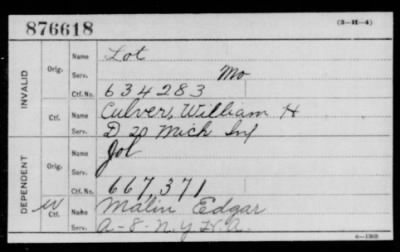 876618
(3-H-4)
INVALID
Orig.
Name Lot
Serv. Mo
Ctf. No. 634283
Ctf.
Name Culver, William H
Serv. D 20 Mich Inf
DEPENDENT
Orig.
Name Jol
Serv.
Ctf. No. 667,371
W Ctf.
Name Malin Edgar
Serv. A-8-N.Y.H.A.